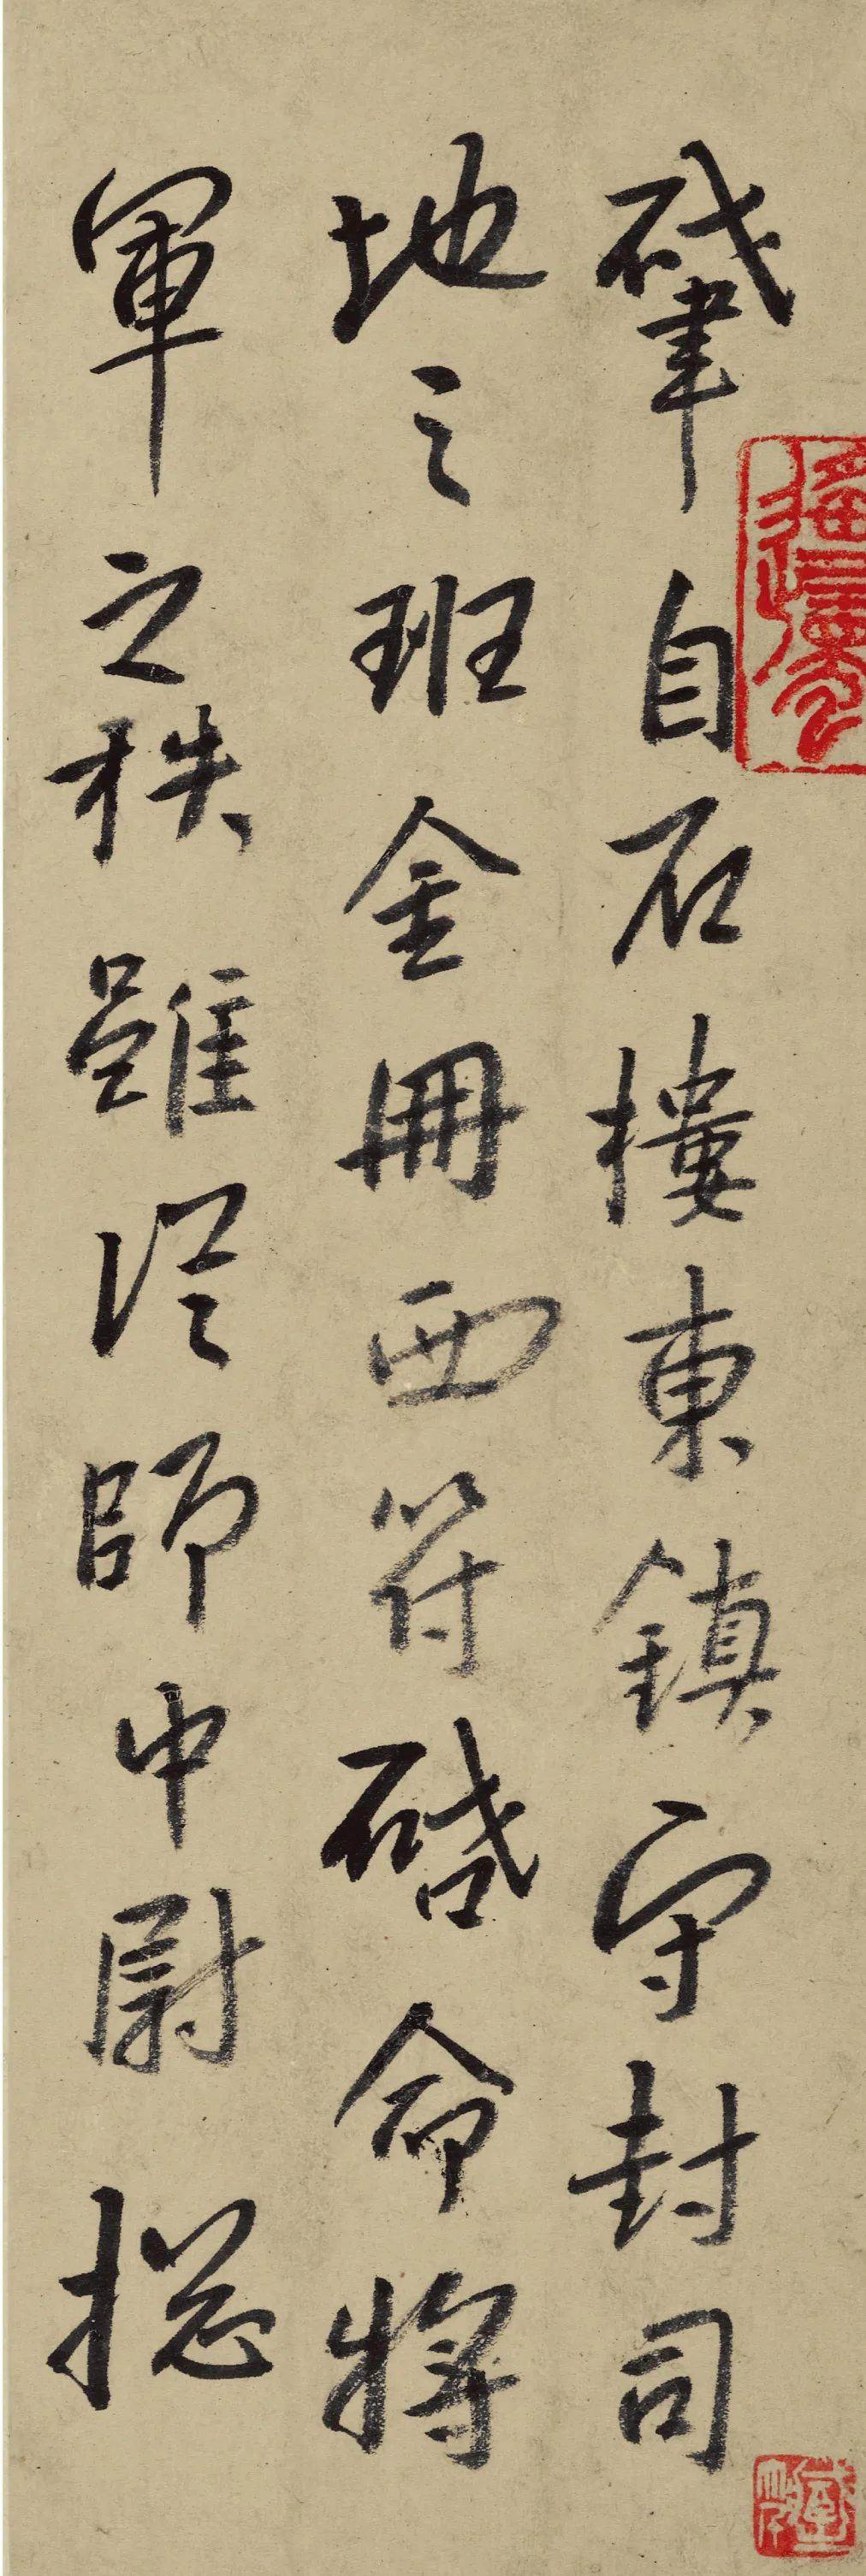 肈自石樓東鎮守封司
地之班金冊西符啓命將
軍之秩雖從師中尉揔